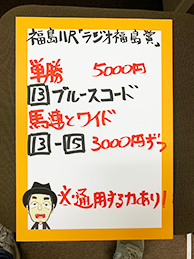 福島11R「ラジオ福島賞」
単勝 5000円
13 ブルースコード
馬連とワイド
13-15 3000円ずつ
※通用する力あり!